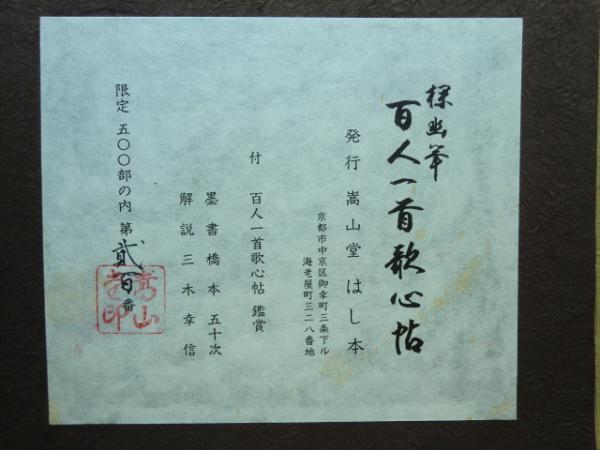 探幽筆
百人一首歌心帖
発行 嵩山堂 はし本
京都市中京区御幸町三条下ル
海老屋町三二八番地
付 百人一首歌心帖 鑑賞
墨書 橋本 五十次
解説 三木 幸信
限定 五〇〇部の内 第 貳百 番
嵩山堂印